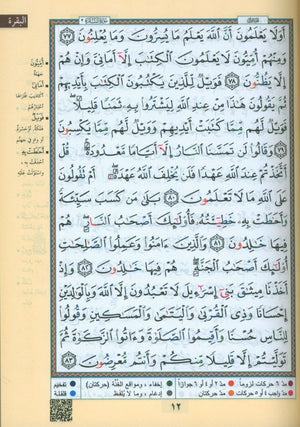 البقرة
أَوَلَا يَعْلَمُونَ أَنَّ ٱللَّهَ يَعْلَمُ مَا يُسِرُّونَ وَمَا يُعْلِنُونَ ٧٧
وَمِنْهُمْ أُمِّيُّونَ لَا يَعْلَمُونَ ٱلْكِتَٰبَ إِلَّآ أَمَانِيَّ وَإِنْ هُمْ
إِلَّا يَظُنُّونَ ٧٨ فَوَيْلٌ لِّلَّذِينَ يَكْتُبُونَ ٱلْكِتَٰبَ بِأَيْدِيهِمْ
ثُمَّ يَقُولُونَ هَٰذَا مِنْ عِندِ ٱللَّهِ لِيَشْتَرُوا۟ بِهِۦ ثَمَنًا قَلِيلًا
فَوَيْلٌ لَّهُم مِّمَّا كَتَبَتْ أَيْدِيهِمْ وَوَيْلٌ لَّهُم مِّمَّا يَكْسِبُونَ
٧٩ وَقَالُوا۟ لَن تَمَسَّنَا ٱلنَّارُ إِلَّآ أَيَّامًا مَّعْدُودَةً قُلْ
أَتَّخَذْتُمْ عِندَ ٱللَّهِ عَهْدًا فَلَن يُخْلِفَ ٱللَّهُ عَهْدَهُۥٓ أَمْ تَقُولُونَ
عَلَى ٱللَّهِ مَا لَا تَعْلَمُونَ ٨٠ بَلَىٰ مَن كَسَبَ سَيِّئَةً
وَأَحَٰطَتْ بِهِۦ خَطِيٓـَٔتُهُۥ فَأُو۟لَٰٓئِكَ أَصْحَٰبُ ٱلنَّارِ هُمْ
فِيهَا خَٰلِدُونَ ٨١ وَٱلَّذِينَ ءَامَنُوا۟ وَعَمِلُوا۟ ٱلصَّٰلِحَٰتِ
أُو۟لَٰٓئِكَ أَصْحَٰبُ ٱلْجَنَّةِ هُمْ فِيهَا خَٰلِدُونَ ٨٢ وَإِذْ
أَخَذْنَا مِيثَٰقَ بَنِىٓ إِسْرَٰٓءِيلَ لَا تَعْبُدُونَ إِلَّا ٱللَّهَ وَبِٱلْوَٰلِدَيْنِ
إِحْسَانًا وَذِى ٱلْقُرْبَىٰ وَٱلْيَتَٰمَىٰ وَٱلْمَسَٰكِينِ وَقُولُوا۟
لِلنَّاسِ حُسْنًا وَأَقِيمُوا۟ ٱلصَّلَوٰةَ وَءَاتُوا۟ ٱلزَّكَوٰةَ ثُمَّ
تَوَلَّيْتُمْ إِلَّا قَلِيلًا مِّنكُمْ وَأَنتُم مُّعْرِضُونَ ٨٣
أُمِّيُّونَ
جهلة
أَمَانِيَّ
فَوَيْلٌ
أَحَٰطَتْ بِهِ
مدّ ٦ حركات لزوماً مدّ ٢ أو ٤ أو ٦ جوازاً إخفاء، ومواقع الغُنَّة (حركتان) تفخيم
مدّ واجب ٤ أو ٥ حركات مدّ حركتان إدغام، وما لا يُلفَظ قلقلة
١٢